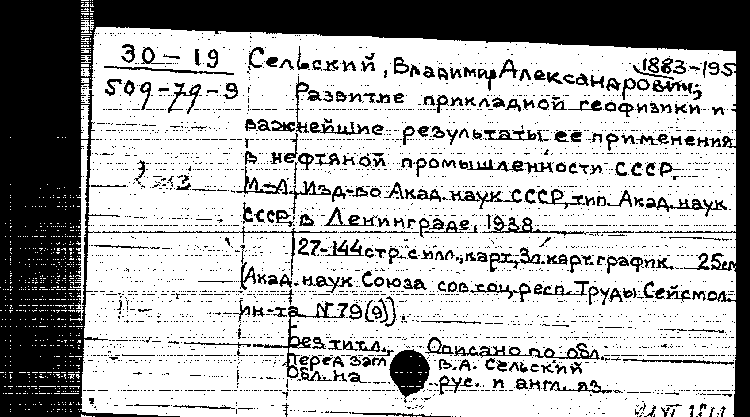 30-19
509-79-9
Сельский, Владимир Александрович, 1883-195
Развитие прикладной геофизики и
важнейшие результаты ее применения
в нефтяной промышленности СССР.
М.-Л. Изд-во Акад. наук СССР, тип. Акад. наук
СССР в Ленинграде, 1938.
27-144 стр. с илл., карт, 3 л. карт. график. 25см
(Акад. наук Союза сов. соц. респ. Труды Сейсмол.
ин-та № 79(9)).
Без титл. Описано по обл.
Перед заг. В.А. Сельский
Обл. на рус. и англ. яз.